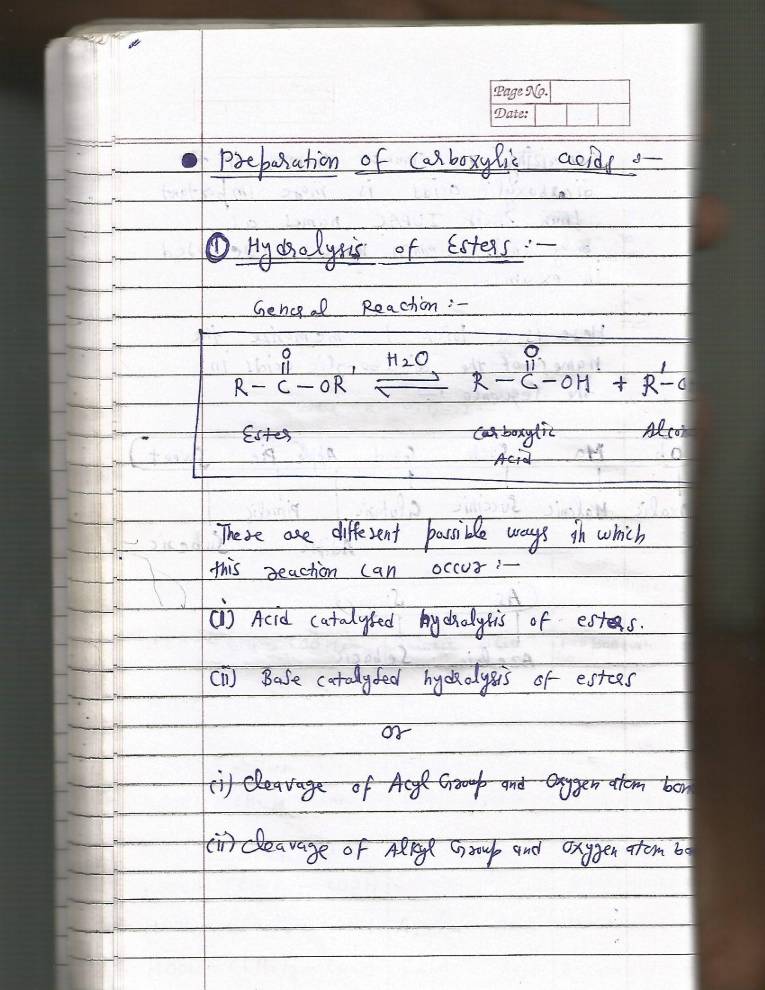 Page No.
Date:
Preparation of Carboxylic acids :-
① Hydrolysis of Esters :-
General Reaction :-
O H2O O
R - C - OR' ⇌ R - C - OH + R'-O
Ester Carboxylic Alco
Acid
There are different possible ways in which
this reaction can occur :-
(i) Acid catalysed hydrolysis of esters.
(ii) Base catalysed hydrolysis of esters
or
(i) Cleavage of Acyl Group and Oxygen atom bon
(ii) Cleavage of Alkyl Group and oxygen atom bo